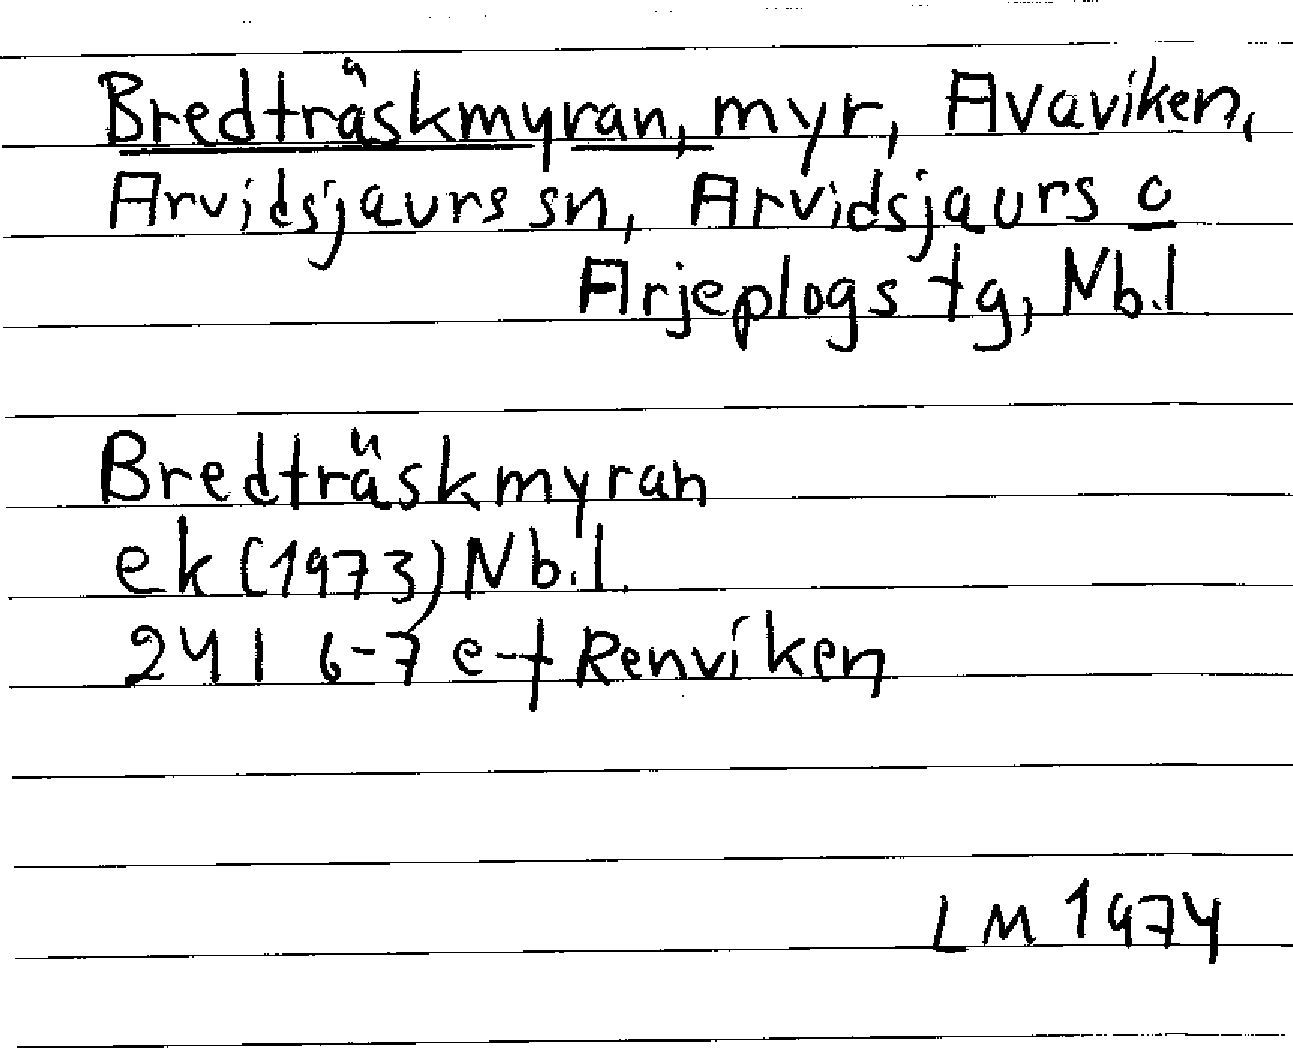 Bredträskmyran, myr, Avaviken,
Arvidsjaurs sn, Arvidsjaurs o
Arjeplogs tg, Nb.l
Bredträskmyran
ek (1973) Nb.l.
24 I 6-7 e-f Renviken
LM 1974